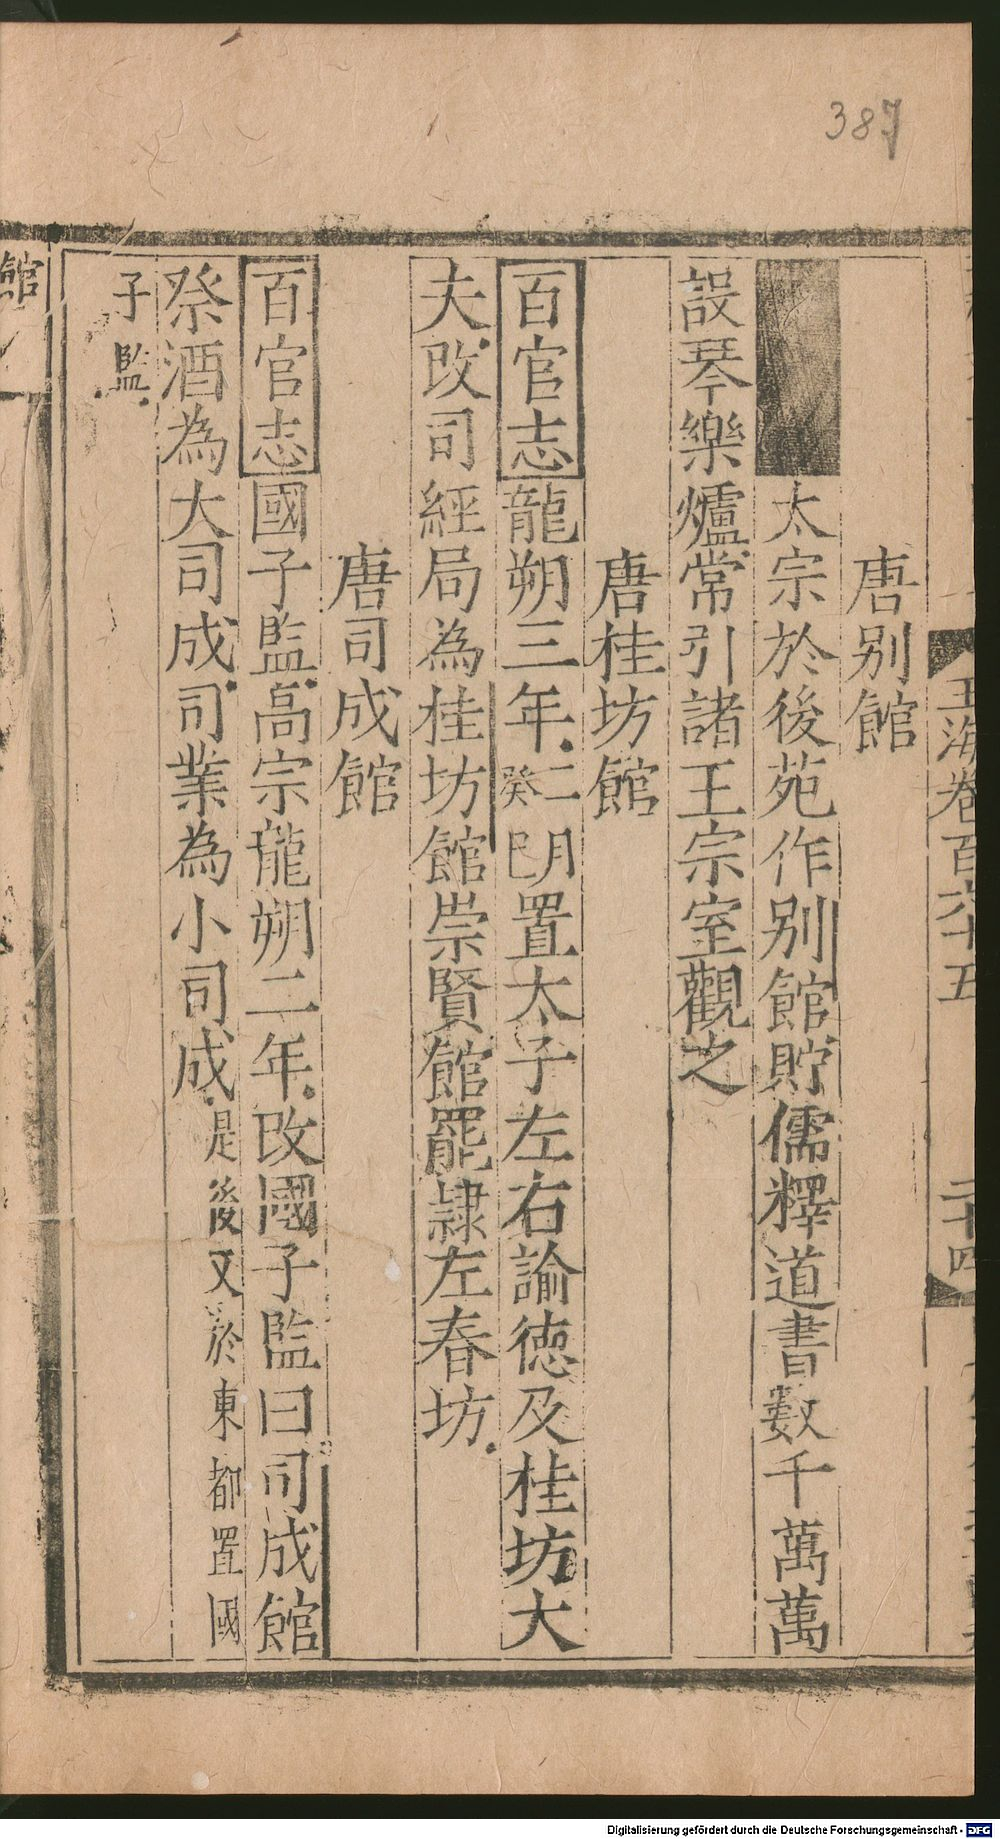 387
玉海卷百六十五 二十四
唐别館
太宗於後苑作别館貯儒釋道書數千萬萬
設琴樂爐常引諸王宗室觀之
唐桂坊館
百官志龍朔三年二月癸巳置太子左右諭徳及桂坊大
夫改司經局為桂坊館崇賢館罷隷左春坊
唐司成館
百官志國子監高宗龍朔二年改國子監曰司成館
祭酒為大司成司業為小司成是後又於東都置國
子監
館
Digitalisierung gefördert durch die Deutsche Forschungsgemeinschaft - DFG